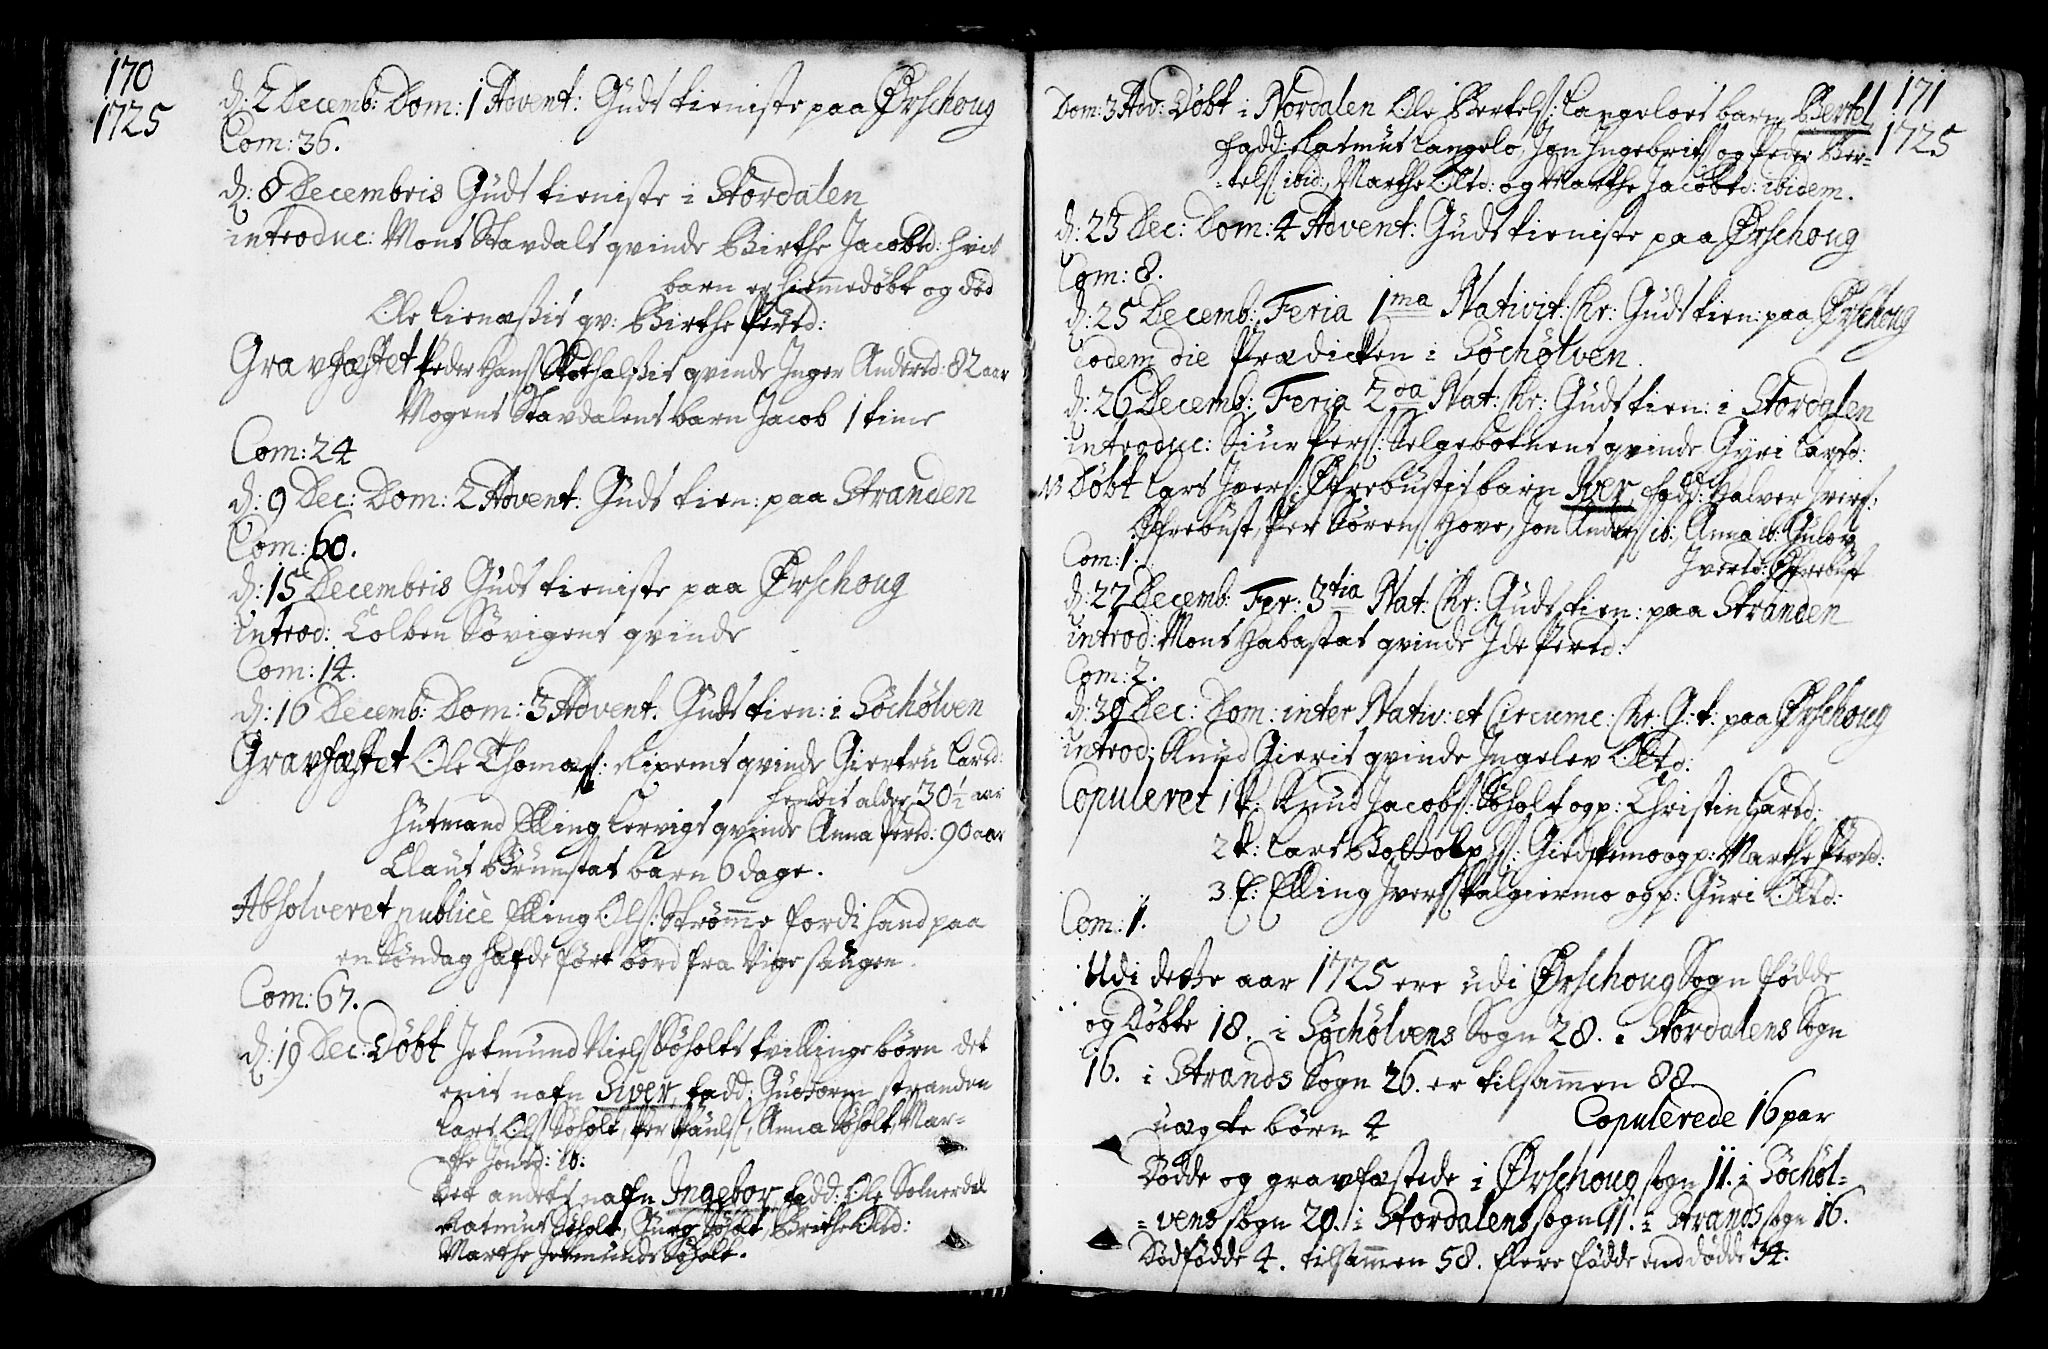 170
1725
d: 2 Decemb: Dom: 1 Advent: Guds tieniste paa Ørschoug
Com: 36.
d: 8 Decembris Guds tieniste i Stordalen
introduc: Mons Stavdals qvinde Birthe Jacobsd: hvis
barn er hiemmedøbt og død
Ole qv: Birthe Persd:
Gravfæstet Peder Hans qvinde Inger Andersd: 82 aar
Mogens Stavdalens barn Jacob 1 time
Com: 24
d: 9 Dec: Dom: 2 Advent: Guds tien: paa Stranden
Com: 60.
d: 15 Decembris Guds tieniste paa Ørschoug
introd: Colben Søvigens qvinde
Com: 14.
d: 16 Decemb: Dom: 3 Advent. Guds tien: i Søchølven
Gravfæstet Ole Thomæs: Ripems qvinde Giertru Larsd:
hendis alder 30½ aar
Husmand Elling Lervigs qvinde Anna Persd: 90 aar
Claus Brunstat barn 6 dage.
Absolveret publice Elling Ols: Strømme fordi hand paa
en Søndag hafde ført bord fra Vigesaugen.
Com: 67.
d: 19 Dec: Døbt Jetmund Niels Søholts tvillinge børn det
enis nafn Siver, fadd: Guthorm stranden
Lars Ols Søholt, Per Pauls, Anna Søholt, Mar-
-the Jonsd: ib:
Det andets nafn Ingebor, fadd: Ole Solnerdal
Rasmus Søholt, Siurg Søholt, Birthe Olsd:
Marthe Jetmunds Søholt.
Dom: 3 Adv: Døbt i Nordalen Ole Bertels: Langeloes barn Bertel
171
1725
fadd: Rasmus Langelo, Jon Ingebrits og Peder Ber-
-tels ibid:, Marthe Olsd: og Marthe Jacobsd: ibidem.
d: 23 Dec: Dom: 4 Advent: Guds tieniste paa Ørschoug
Com: 8.
d: 25 Decemb: Feria 1ma Nativit: Chr: Guds tien: paa Ørschoug
eodem die Prædicken i Søchølven.
d: 26 Decemb: Feria 2da Nat: Chr: Guds tien: i Stordalen
introduc: Siur Pers: Selgebotnens qvinde Gyri Larsd:
NB Døbt Lars Ivers: Øfrebustis barn Iver, fadd: Halver Ivers:
Øfrebust, Per Sørens Hove, Jon Anders ib:, Anna ib: Gulov
Com: 1.
Iversd: Øfrebust
d: 27 Decemb: Fer: 3tia Nat: Chr: Guds tien: paa Stranden
introd: Mons Habastat qvinde Ide Persd:
Com: 2.
d: 30 Dec: Dom: inter Nativ: et Circumc: Chr: G: t: paa Ørschoug
introd: Knud Gieris qvinde Ingelev Olsd:
Copuleret 1 P: Knud Jacobs: Søholt og p: Christin Larsd:
2 P: Lars Gieds og p: Marthe Persd:
3 P: Elling Ivers og p: Guri Olsd:
Com: 1.
Udi dette aar 1725 ere udi Ørschoug Sogn fødde
og Døbte 18. i Søchølvens Sogn 28. i Stordalens Sogn
16. i Strands Sogn 26. er tilsammen 88
uægte børn 4
Copulerede 16 par
Dødde og gravfæstede i Ørschoug sogn 11. i Søchøl-
-vens sogn 20. i Stordalens sogn 11. i Strands sogn 16.
Dødfødde 4. tilsammen 58. flere fødde end dødde 34.